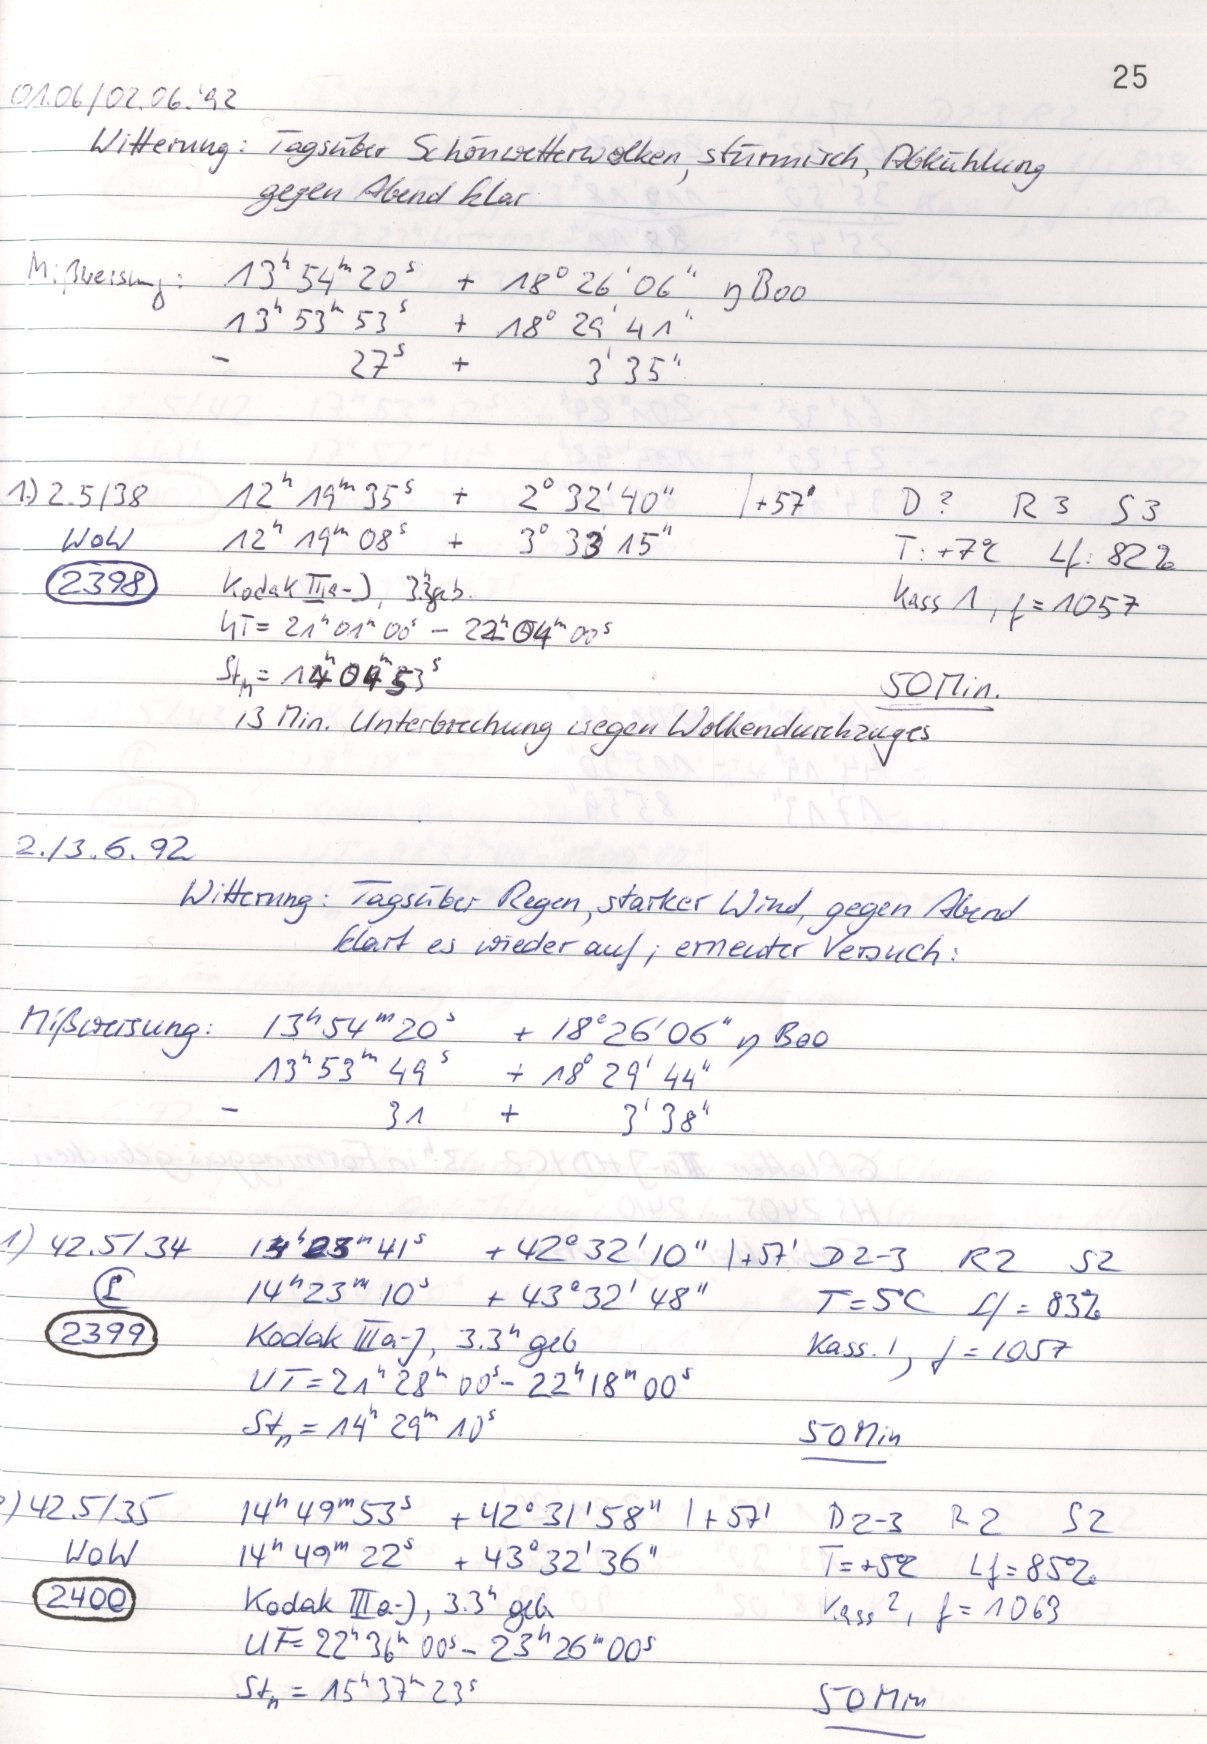 25
01.06/02.06.'92
Witterung: Tagsüber Schönwetterwolken, stürmisch, Abkühlung
gegen Abend klar
Mißweisung: 13ʰ 54ᵐ 20ˢ + 18° 26' 06" η Boo
13ʰ 53ᵐ 53ˢ + 18° 29' 41"
- 27ˢ + 3' 35"
1.) 2.5/38 12ʰ 19ᵐ 35ˢ + 2° 32' 40" |+57' D ? R 3 S 3
WoW 12ʰ 19ᵐ 08ˢ + 3° 33' 15" T: +7°C Lf: 82%
2398 Kodak IIIa-J, 3.3ʰ geb. Kass 1, f = 1057
UT = 21ʰ 01ᵐ 00ˢ - 22ʰ 04ᵐ 00ˢ
Stₙ = 14ʰ 04ᵐ 53ˢ 50 Min.
13 Min. Unterbrechung wegen Wolkendurchzuges
2./3.6.92
Witterung: Tagsüber Regen, starker Wind, gegen Abend
klart es wieder auf; erneuter Versuch:
Mißweisung: 13ʰ 54ᵐ 20ˢ + 18° 26' 06" η Boo
13ʰ 53ᵐ 49ˢ + 18° 29' 44"
- 31 + 3' 38"
1) 42.5/34 14ʰ 23ᵐ 41ˢ + 42° 32' 10" |+57' D 2-3 R 2 S 2
14ʰ 23ᵐ 10ˢ + 43° 32' 48" T = 5°C Lf = 83%
2399 Kodak IIIa-J, 3.3ʰ geb Kass. 1, f = 1057
UT = 21ʰ 28ᵐ 00ˢ - 22ʰ 18ᵐ 00ˢ
Stₙ = 14ʰ 29ᵐ 10ˢ 50 Min
2) 42.5/35 14ʰ 49ᵐ 53ˢ + 42° 31' 58" |+57' D 2-3 R 2 S 2
WoW 14ʰ 49ᵐ 22ˢ + 43° 32' 36" T = +5°C Lf = 85%
2400 Kodak IIIa-J, 3.3ʰ geb. Kass 2, f = 1063
UT = 22ʰ 36ᵐ 00ˢ - 23ʰ 26ᵐ 00ˢ
Stₙ = 15ʰ 37ᵐ 23ˢ 50 Min